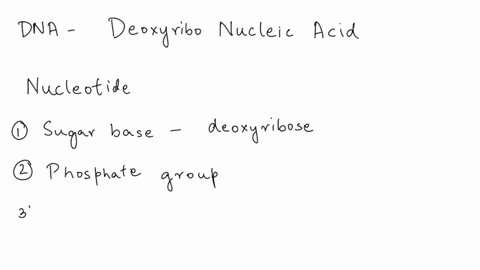 DNA - Deoxyribo Nucleic Acid
Nucleotide
① Sugar base - deoxyribose
② Phosphate group
3